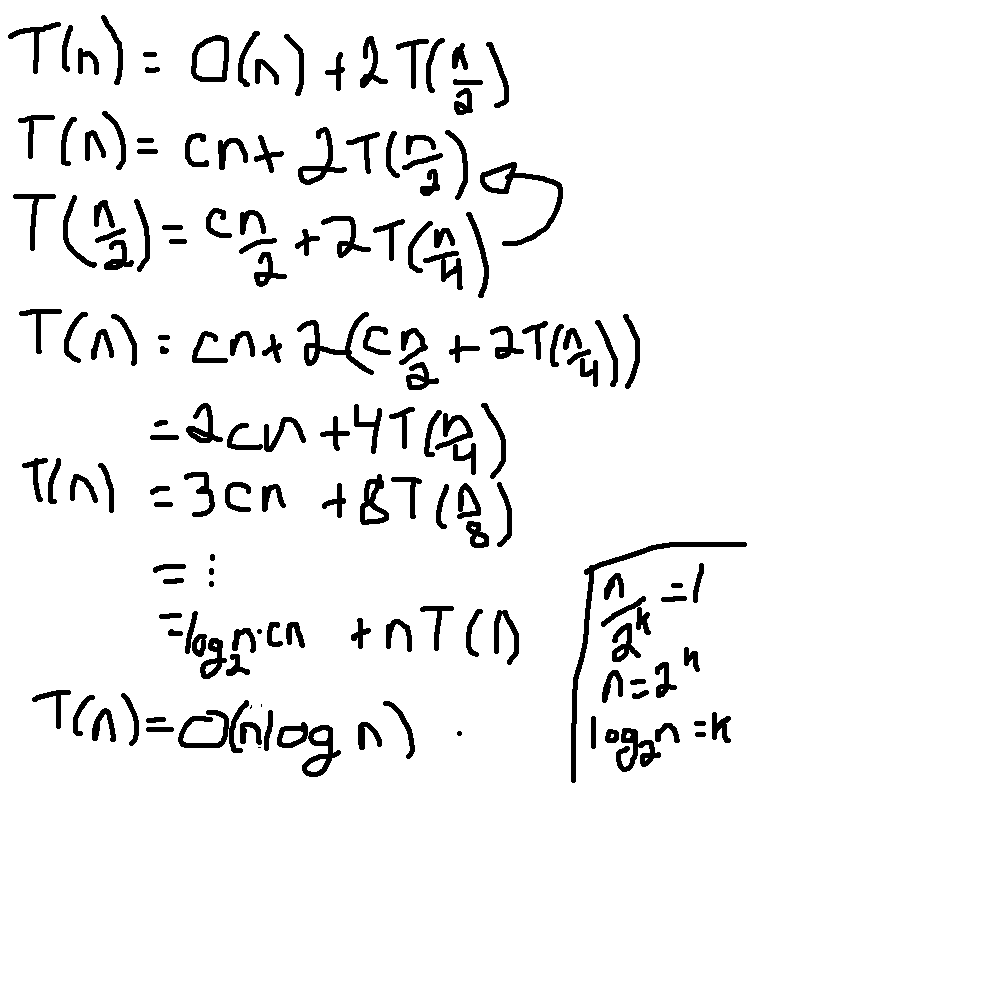 T(n) = O(n) + 2T(n/2)
T(n) = cn + 2T(n/2)
T(n/2) = cn/2 + 2T(n/4)
T(n) = cn + 2(cn/2 + 2T(n/4))
= 2cn + 4T(n/4)
T(n) = 3cn + 8T(n/8)
= ⋮
= log₂n·cn + nT(1)
T(n) = O(n log n)
n/2ᵏ = 1
n = 2ᵏ
log₂n = k